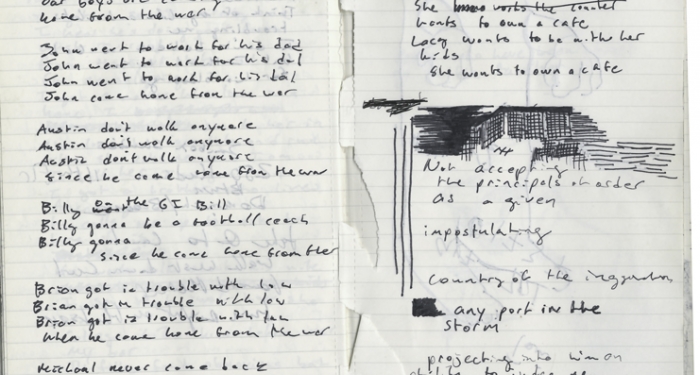 home from the war
John went to work for his dad
John went to work for his dad
John went to work for his dad
John come home from the war
Austin don't walk anymore
Austin don't walk anymore
Austin don't walk anymore
Since he come home from the war
Billy on the GI Bill
Billy gonna be a football coach
Billy gonna
since he come home from the
Brian got in trouble with law
Brian got in trouble with law
Brian got in trouble with law
When he come home from the war
Michael never come back
She works the counter
wants to own a cafe
Lacy wants to be with her
kids
She wants to own a cafe
Not accepting
the principals of order
as a given
impostulating
country of the
any port in the
storm
projecting into him an